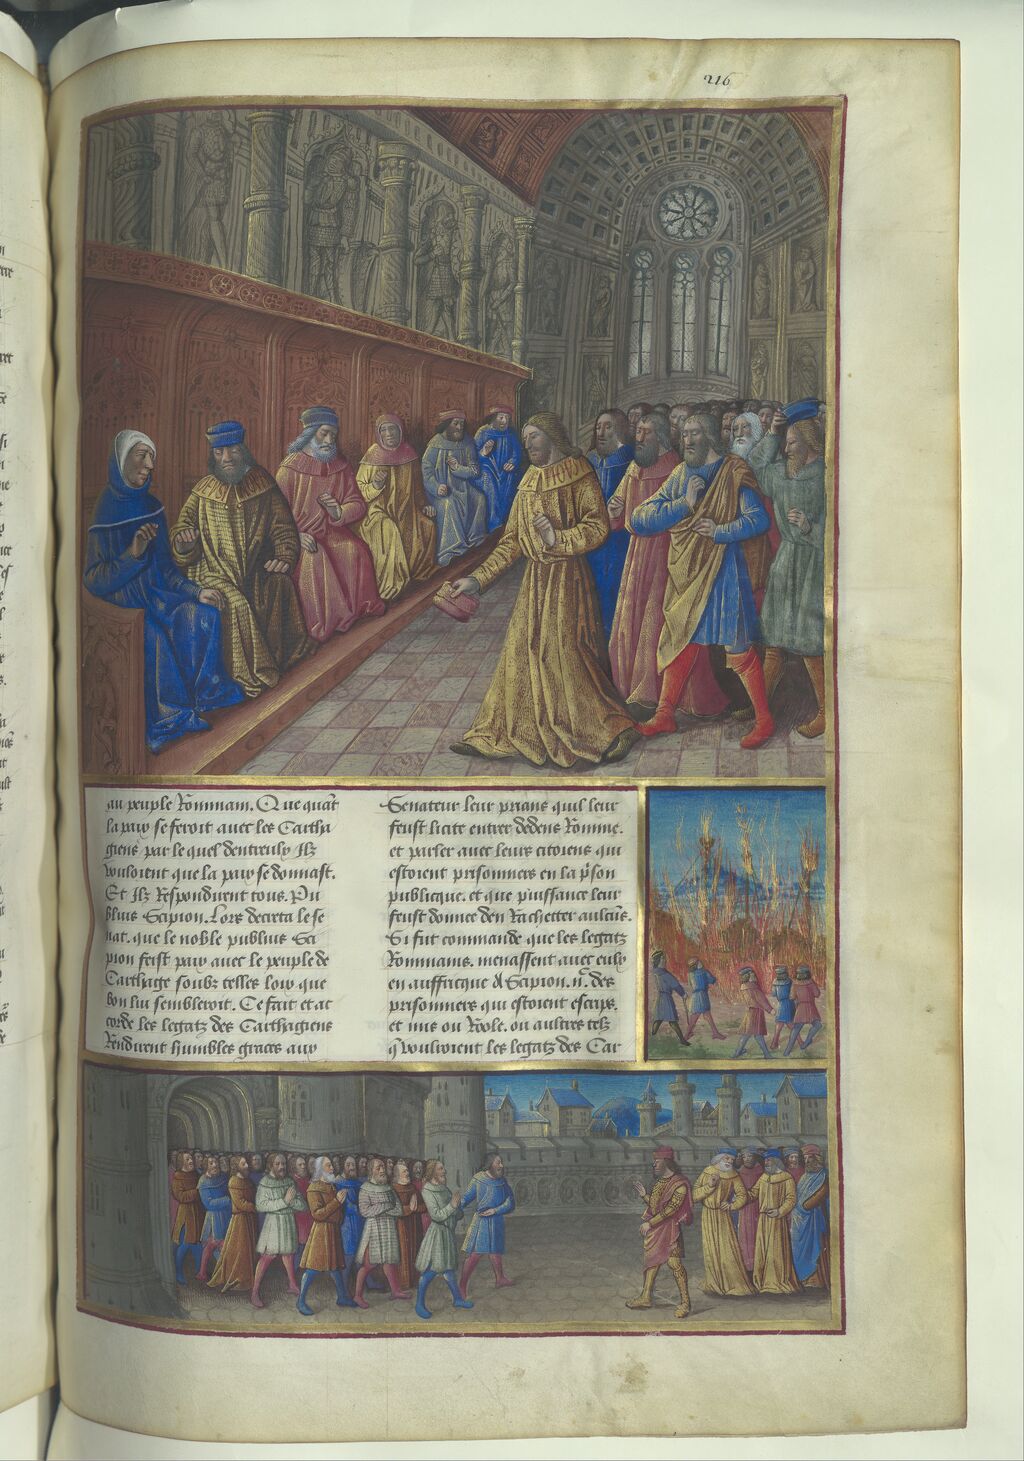 216
au peuple Rommain. Que quāt
la paix se feroit avec les Cartha
giens par le quel dentreulx Ilz
vouloient que la paix se donnast.
Et Ilz Respondirent tous. Pu
blius Scipion. Lors decreta le se
nat. que le noble publius Sci
pion feist paix avec le peuple de
Carthage soubz telles loix que
bon lui sembleroit. Ce fait et ac
corde les legatz des Carthagiens
Rendirent humbles graces aux
Senateur leur prians quil leur
feust licite entrer dedens Romme.
et parler avec leurs citoiens qui
estoient prisonniers en la pͥson
publicque. et que puissance leur
feust donnee den Rachetter aulcūs.
Si fut commande que les legatz
Rommains. menassent avec eulx
en auffricque A Scipion. des
prisonniers qui estoient escrips.
et mis ou Role. ou aultres telz
q̄ vouldroient les legatz des Car